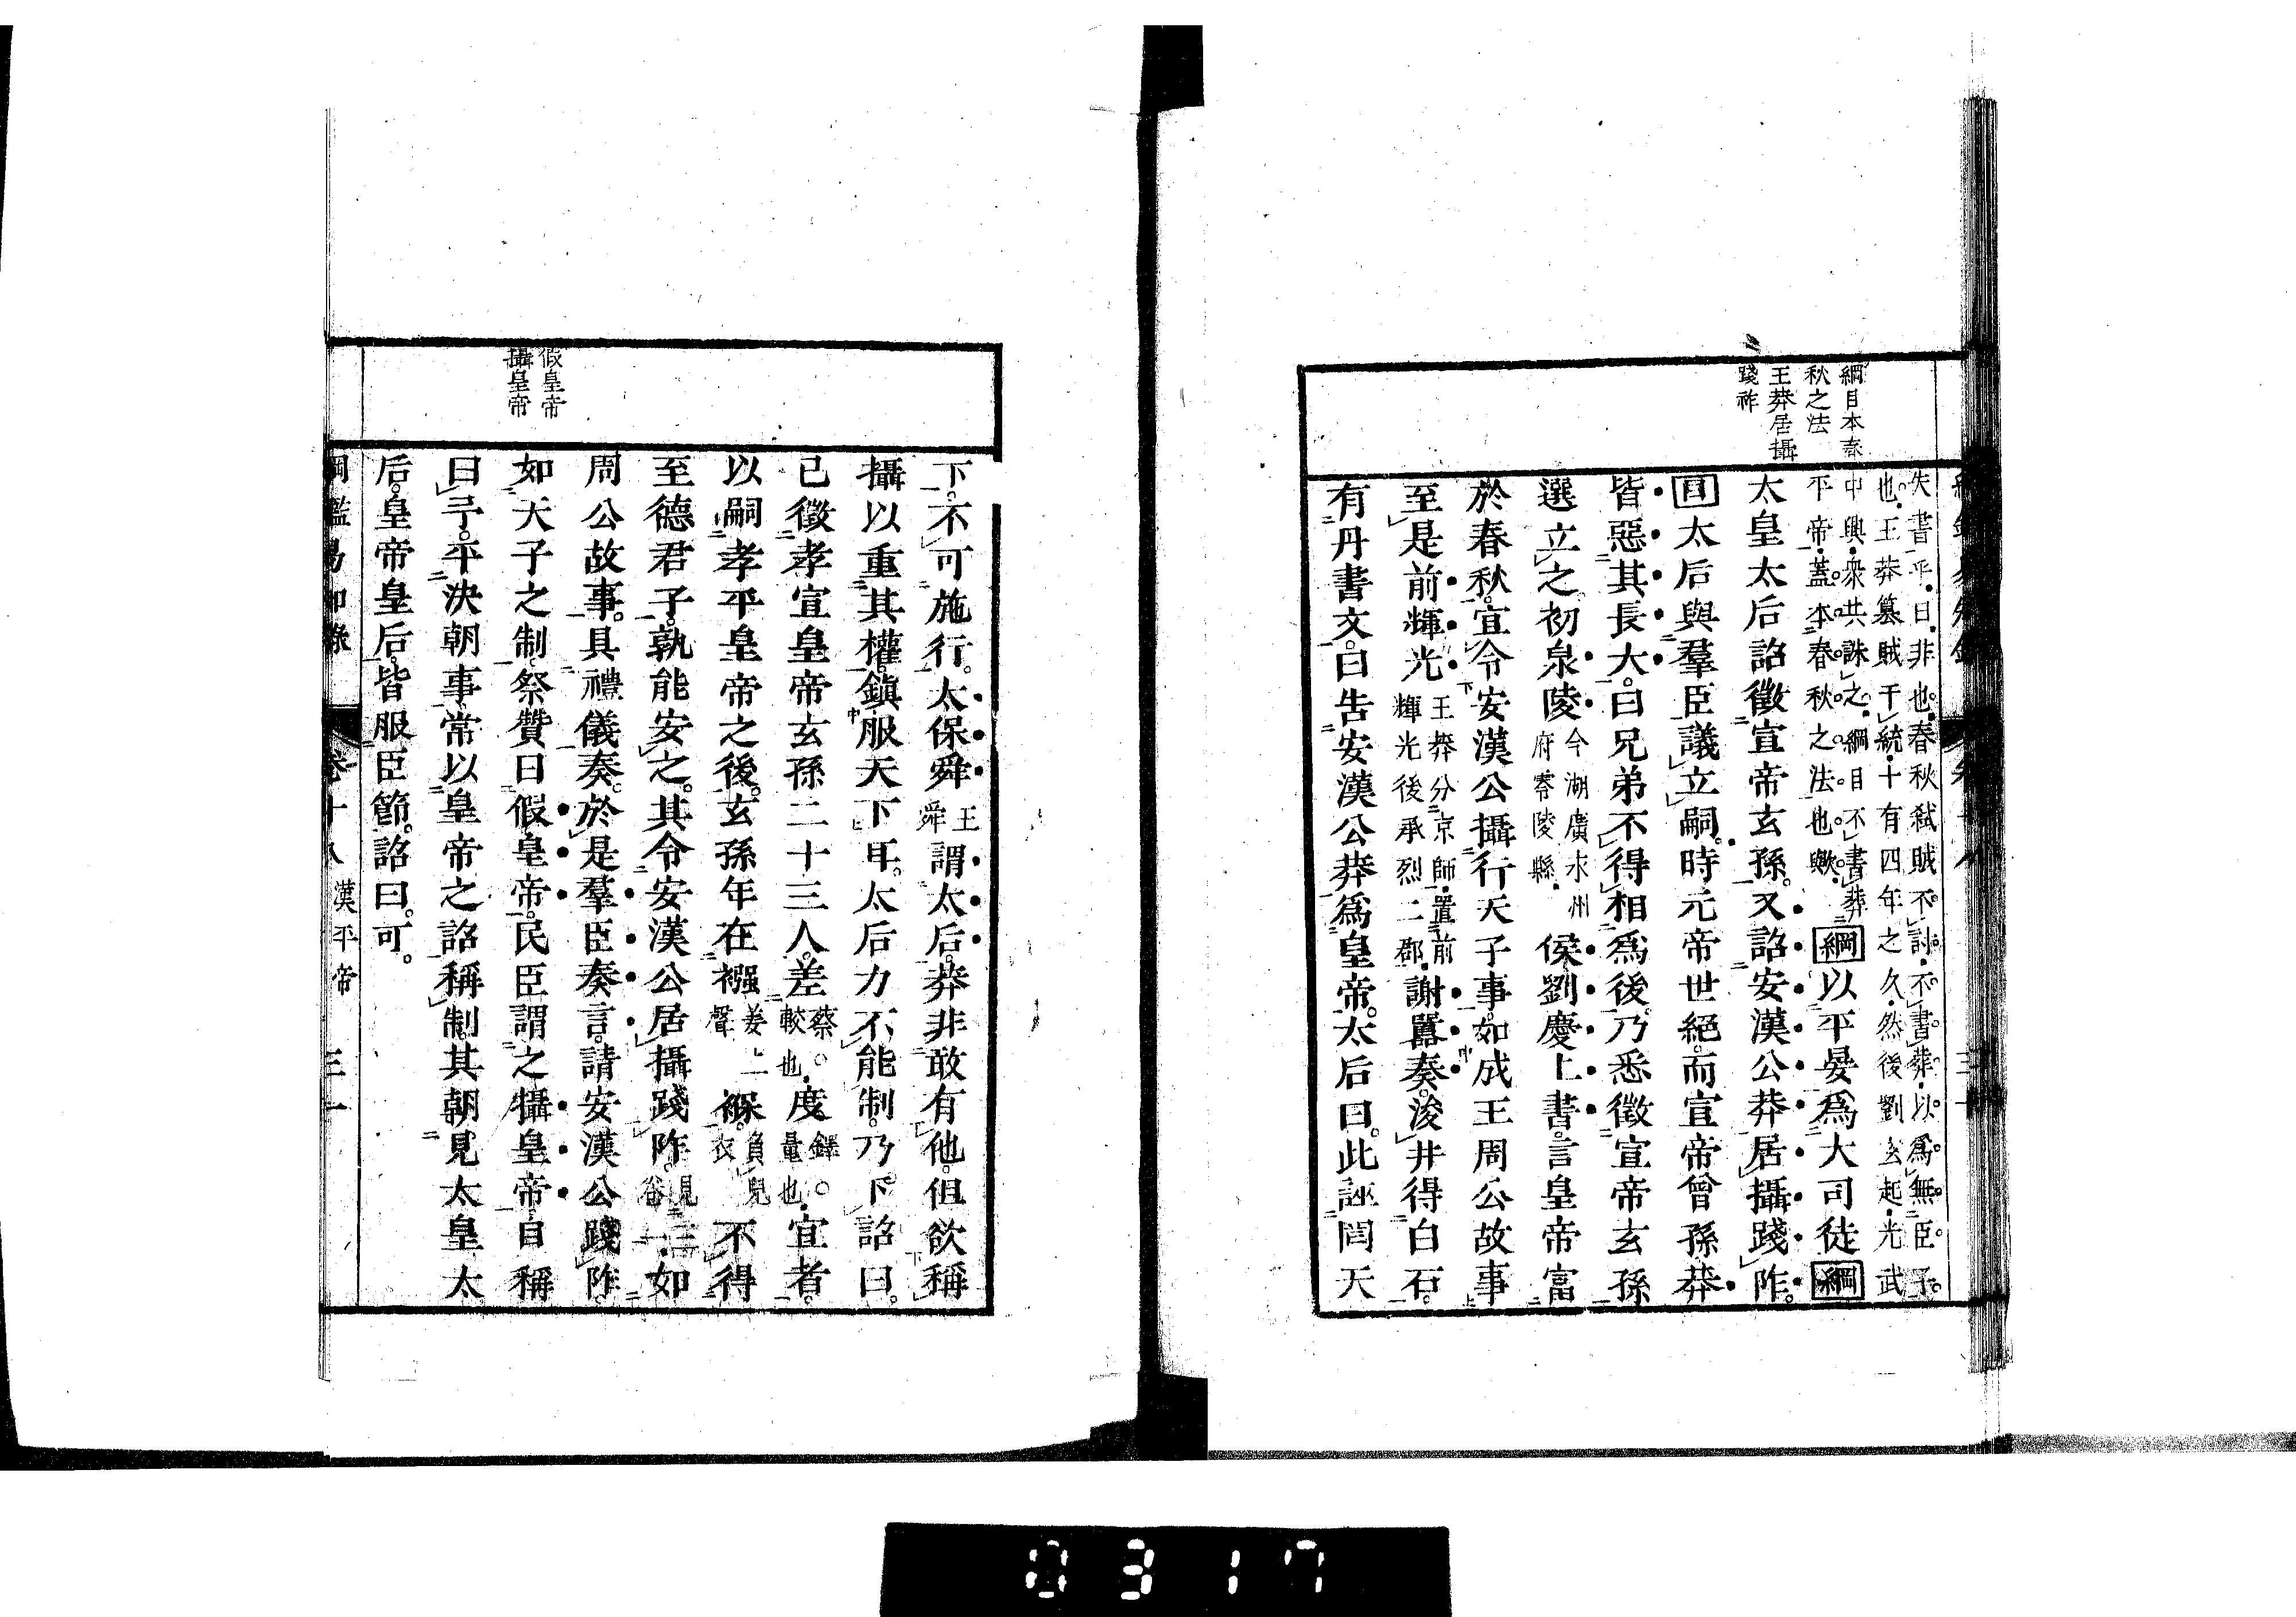 綱目本春
秋之法
王莽居攝
踐祚
失書乎曰非也春秋弑賊不討不書葬以爲無臣子
也王莽篡賊干統十有四年之久然後劉玄起光武
中興衆共誅之綱目不書葬
平帝蓋本春秋之法也歟
綱以平晏爲大司徒綱
太皇太后詔徵宣帝玄孫又詔安漢公莽居攝踐阼
目太后與羣臣議立嗣時元帝世絕而宣帝曾孫莽
皆惡其長大曰兄弟不得相爲後乃悉徵宣帝玄孫
選立之初泉陵今湖廣永州府零陵縣侯劉慶上書言皇帝富
於春秋宜令安漢公攝行天子事如成王周公故事
至是前輝光王莽分京師置前輝光後承烈二郡謝囂奏浚井得白石
有丹書文曰告安漢公莽爲皇帝太后曰此誣罔天
假皇帝
攝皇帝
下不可施行太保舜王舜謂太后莽非敢有他但欲稱
攝以重其權鎮服天下耳太后力不能制乃下詔曰
已徵孝宣皇帝玄孫二十三人差蔡較也度鐸量也宜者
以嗣孝平皇帝之後玄孫年在襁姜上聲褓負兒衣不得
至德君子孰能安之其令安漢公居攝踐阼如
周公故事具禮儀奏於是羣臣奏言請安漢公踐阼
如天子之制祭贊曰假皇帝民臣謂之攝皇帝自稱
曰予平決朝事常以皇帝之詔稱制其朝見太皇太
后皇帝皇后皆服臣節詔曰可
綱鑑易知錄 卷十八 漢平帝 三一
0317